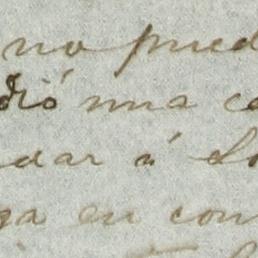 no pued
dió una ca
dar á
ga en con